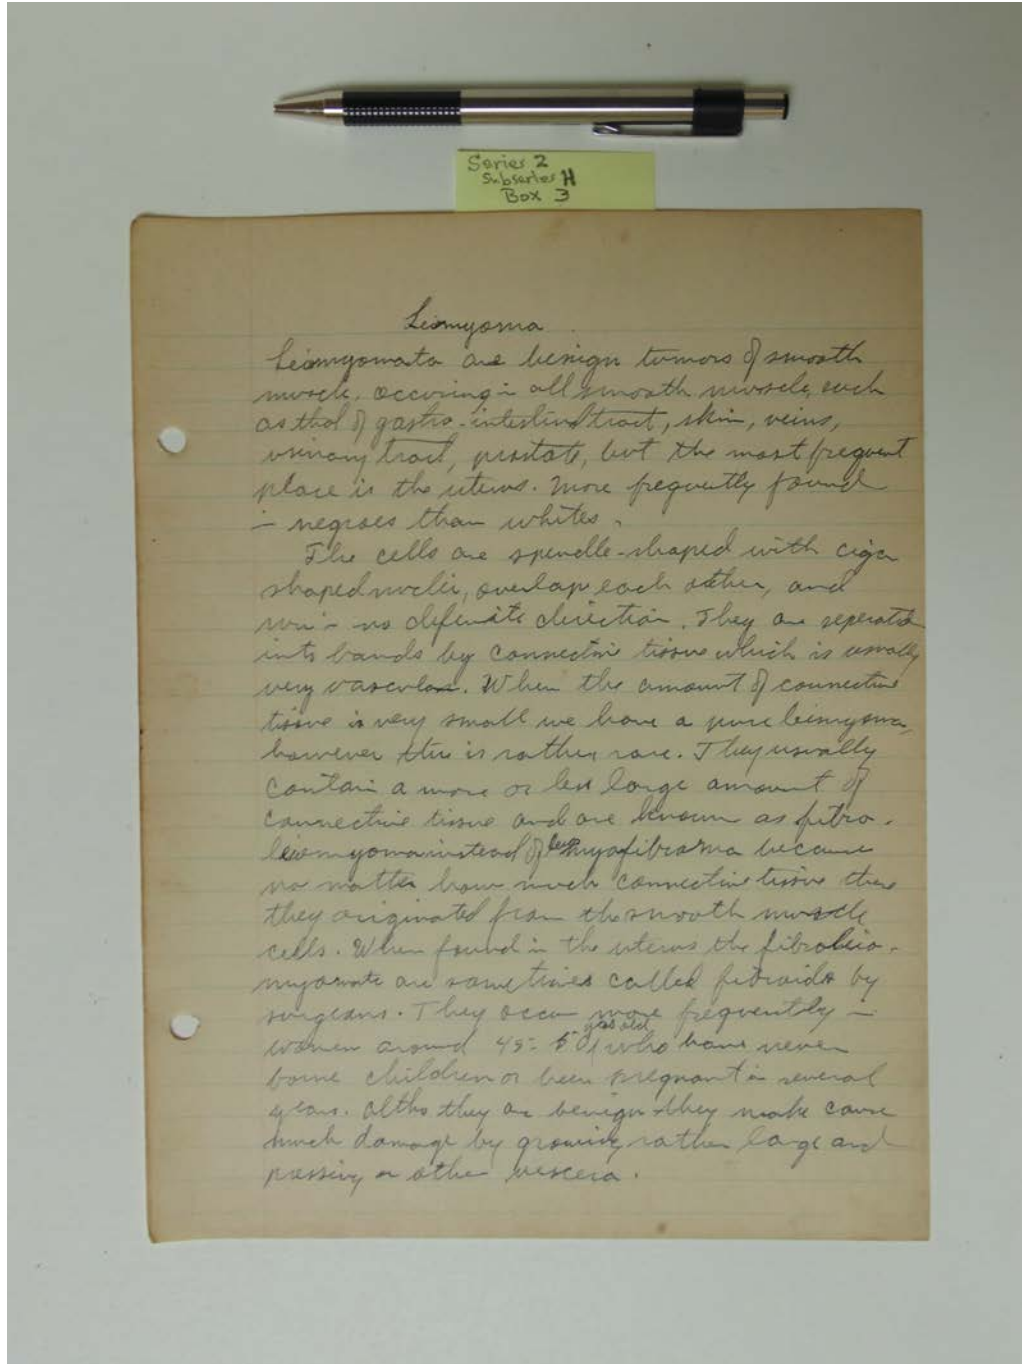 Series 2
Subseries H
Box 3
Leiomyoma
Leiomyomata are benign tumors of smooth
muscle. Occuring in all smooth muscle, such
as that of gastro-intestinal tract, skin, veins,
urinary tract, prostate, but the most frequent
place is the uterus. More frequently found
in negroes than whites.
The cells are spindle-shaped with cigar
shaped nuclei, overlap each other, and
run in no definite direction. They are seperated
into bands by connective tissue which is usually
very vascular. When the amount of connective
tissue is very small we have a pure leiomyoma,
however this is rather rare. They usually
contain a more or less large amount of
connective tissue and are known as fibro-
leiomyoma instead of leiomyofibroma because
no matter how much connective tissue there
they originated from the smooth muscle
cells. When found in the uterus the fibroleio-
myomata are sometimes called fibroids by
surgeons. They occur more frequently in
women around 45-50 yrs old who have never
borne children or been pregnant in several
years. Altho they are benign they make cause
much damage by growing rather large and
pressing on other viscera.